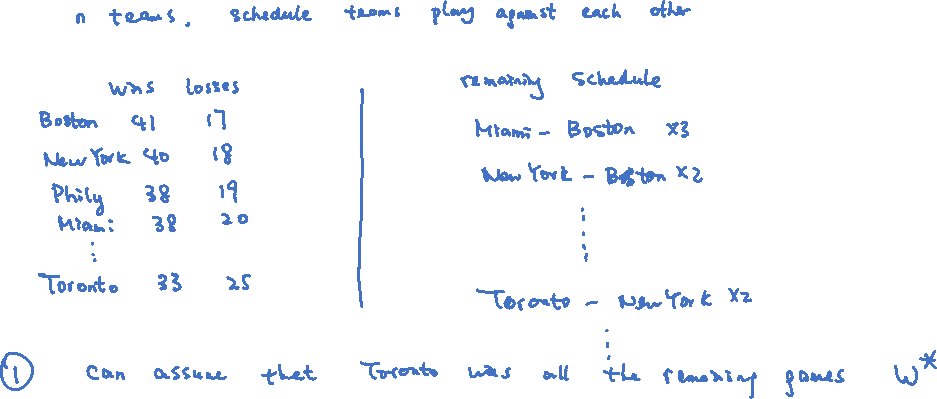 n teams. schedule teams play against each other
wins losses
Boston 41 17
New York 40 18
Phily 38 19
Miami 38 20
Toronto 33 25
remaining schedule
Miami - Boston x3
New York - Boston x2
Toronto - New York x2
① can assume that Toronto wins all the remaining games W*